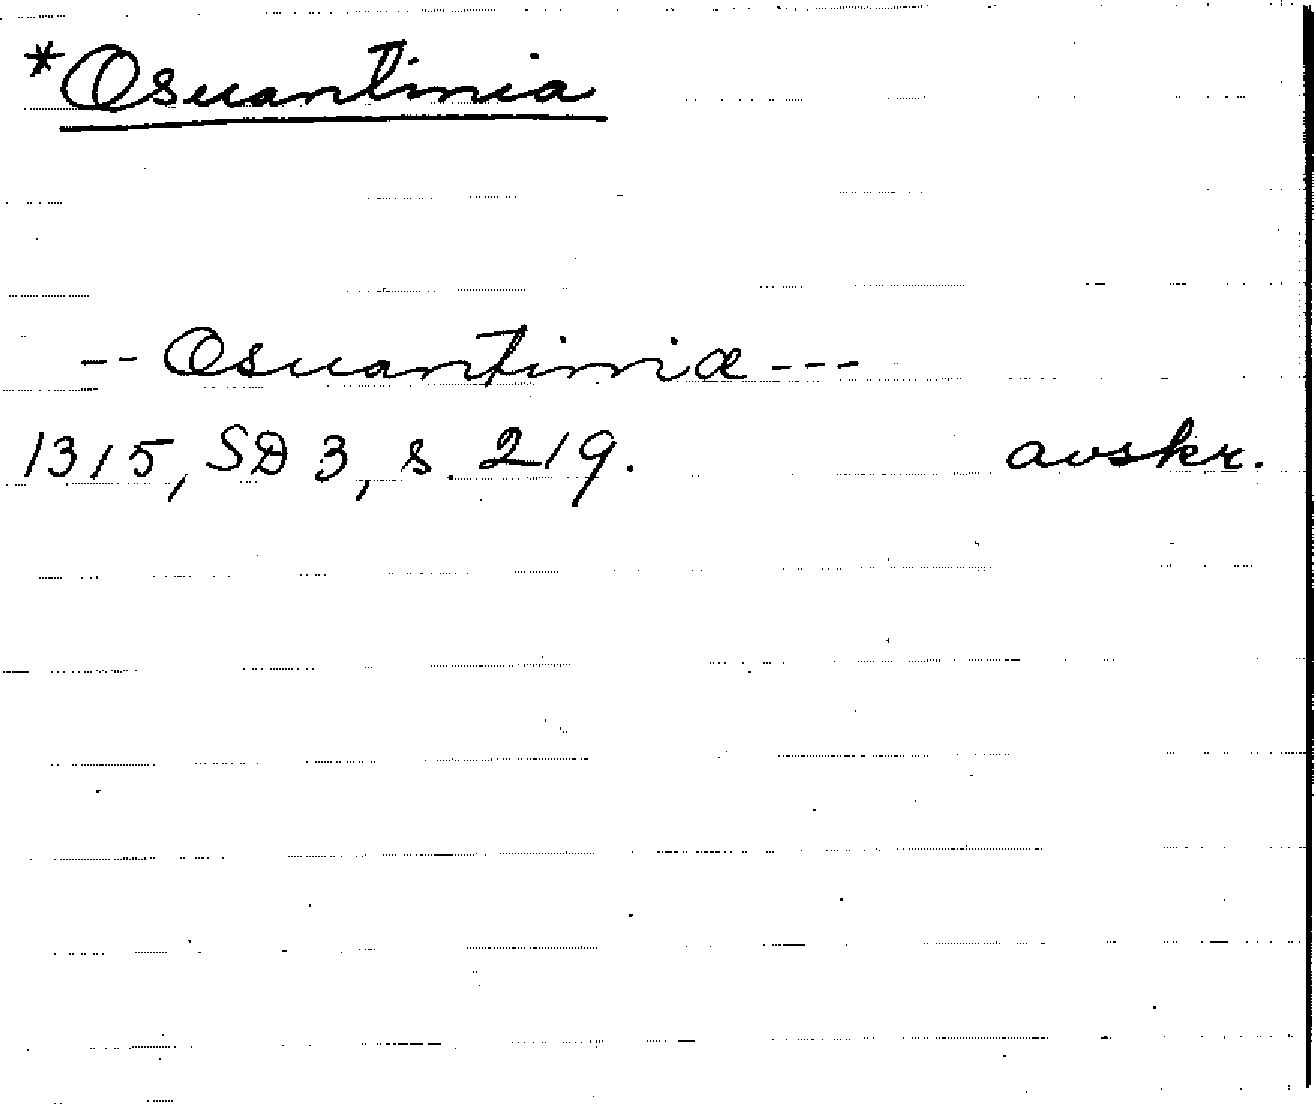 *Osuantinia
-- Osuantinia ---
1315, SD 3, s. 219. avskr.